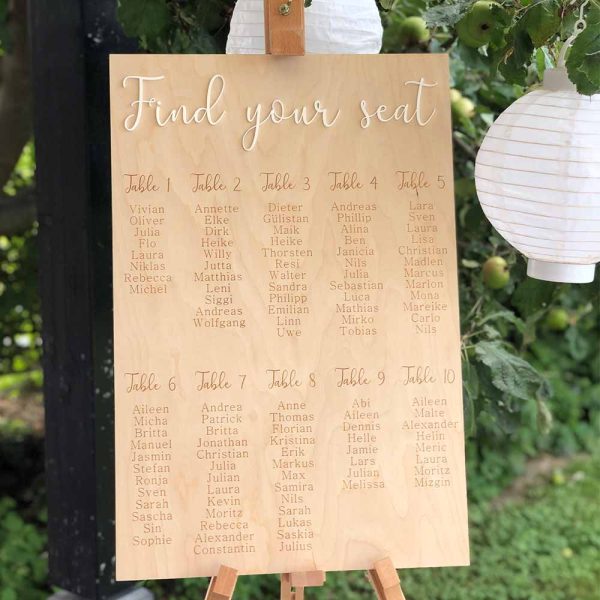 Find your seat
Table 1
Vivian
Oliver
Julia
Flo
Laura
Niklas
Rebecca
Michel
Table 2
Annette
Elke
Dirk
Heike
Willy
Jutta
Matthias
Leni
Siggi
Andreas
Wolfgang
Table 3
Dieter
Gülistan
Maik
Heike
Thorsten
Resi
Walter
Sandra
Philipp
Emilian
Linn
Uwe
Table 4
Andreas
Phillip
Alina
Ben
Janicia
Nils
Julia
Sebastian
Luca
Mathias
Mirko
Tobias
Table 5
Lara
Sven
Laura
Lisa
Christian
Madlen
Marcus
Marlon
Mona
Mareike
Carlo
Nils
Table 6
Aileen
Micha
Britta
Manuel
Jasmin
Stefan
Ronja
Sven
Sarah
Sascha
Sin
Sophie
Table 7
Andrea
Patrick
Britta
Jonathan
Christian
Julia
Julian
Laura
Kevin
Moritz
Rebecca
Alexander
Constantin
Table 8
Anne
Thomas
Florian
Kristina
Erik
Markus
Max
Samira
Nils
Sarah
Lukas
Saskia
Julius
Table 9
Abi
Aileen
Dennis
Helle
Jamie
Lars
Julian
Melissa
Table 10
Aileen
Malte
Alexander
Helin
Meric
Laura
Moritz
Mizgin